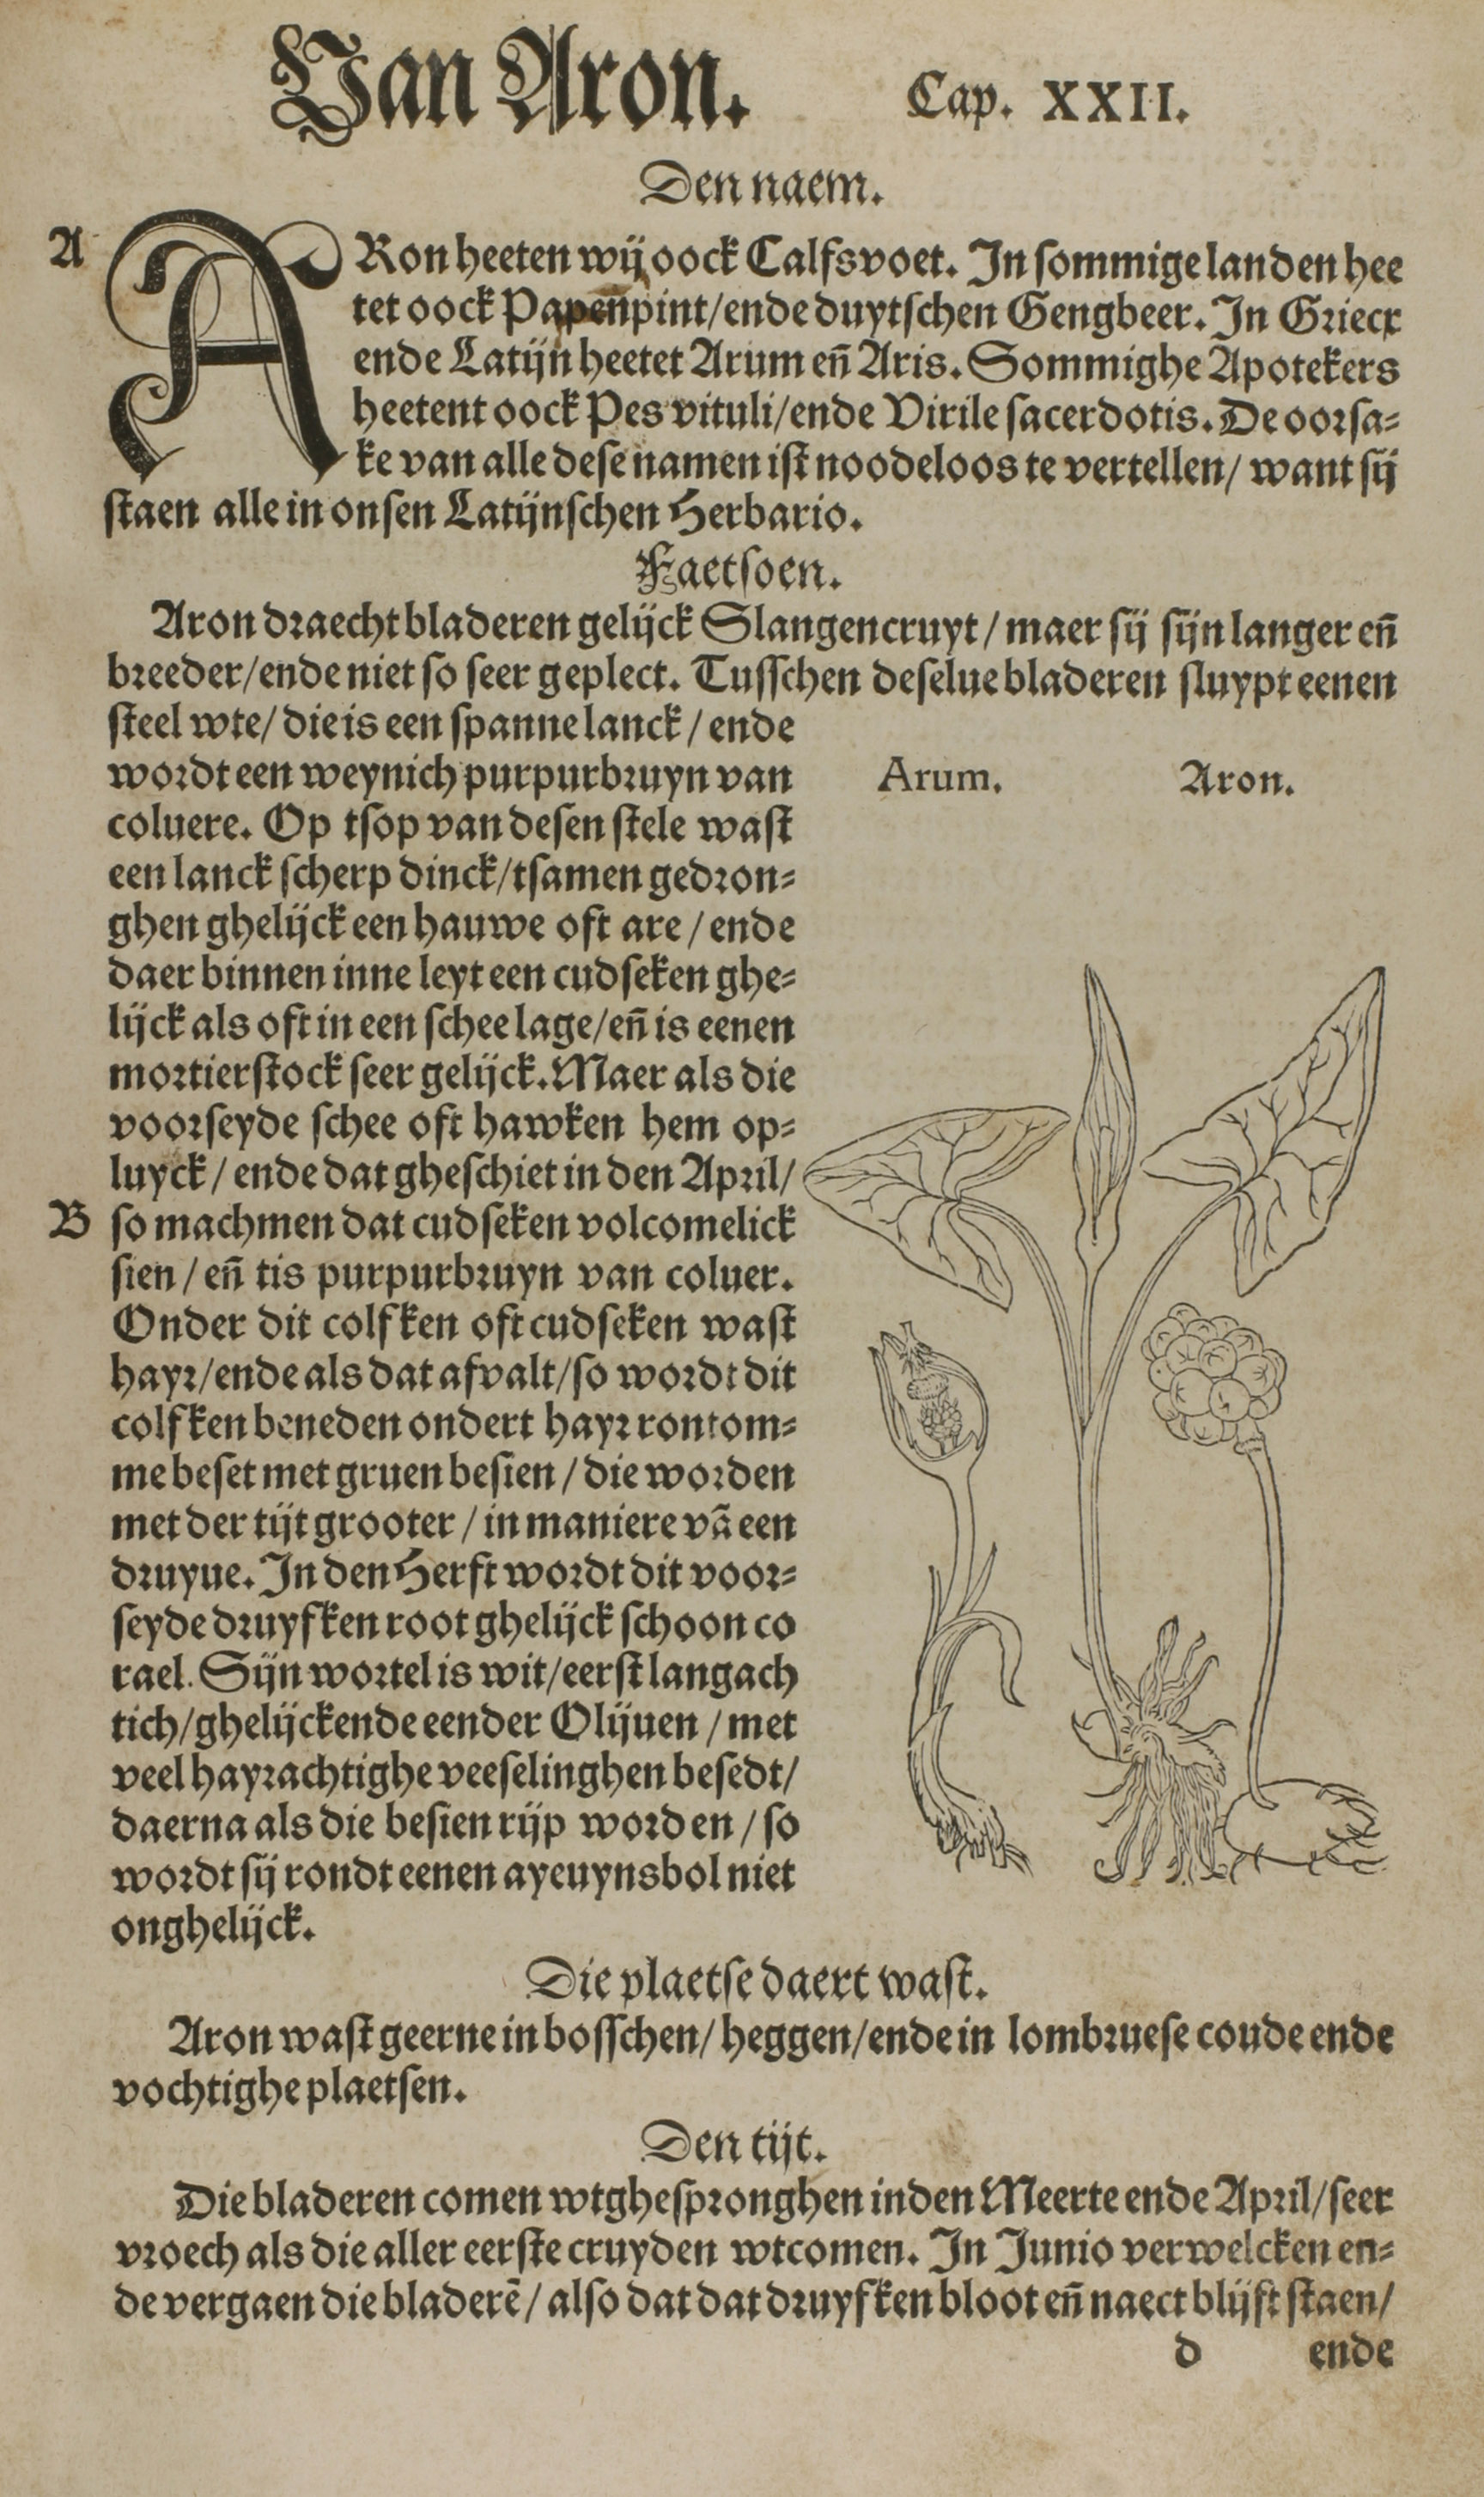 Van Aron. Cap. XXII.
Den naem.
A ARon heeten wij oock Calfsvoet. In sommige landen hee
tet oock Papenpint/ende duytschen Gengbeer. In Griecx
ende Latijn heetet Arum eñ Aris. Sommighe Apotekers
heetent oock Pes vituli/ende Virile sacerdotis. De oorsa-
ke van alle dese namen ist noodeloos te vertellen/ want sij
staen alle in onsen Latijnschen Herbario.
Faetsoen.
Aron draecht bladeren gelijck Slangencruyt/maer sij sijn langer eñ
breeder/ende niet so seer geplect. Tusschen deselue bladeren sluypt eenen
steel wte/ die is een spanne lanck/ende
wordt een weynich purpurbruyn van
coluere. Op tsop van desen stele wast
een lanck scherp dinck/tsamen gedron-
ghen ghelijck een hauwe oft are/ende
daer binnen inne leyt een cudseken ghe-
lijck als oft in een schee lage/eñ is eenen
mortierstock seer gelijck. Maer als die
voorseyde schee oft hawken hem op-
luyck/ende dat gheschiet in den April/
B so machmen dat cudseken volcomelick
sien/eñ tis purpurbruyn van coluer.
Onder dit colfken oft cudseken wast
hayr/ende als dat afvalt/so wordt dit
colfken beneden ondert hayr rontom-
me beset met gruen besien/die worden
met der tijt grooter/in maniere vã een
druyue. In den Herfst wordt dit voor-
seyde druyfken root ghelijck schoon co
rael. Sijn wortel is wit/eerst langach
tich/ghelijckende eender Olijuen/met
veel hayrachtighe veeselinghen besedt/
daerna als die besien rijp worden/so
wordt sij rondt eenen ayeuynsbol niet
onghelijck.
Arum. Aron.
Die plaetse daert wast.
Aron wast geerne in bosschen/ heggen/ende in lombruese coude ende
vochtighe plaetsen.
Den tijt.
Die bladeren comen wtghespronghen inden Meerte ende April/seer
vroech als die aller eerste cruyden wtcomen. In Junio verwelcken en-
de vergaen die bladerẽ/also dat dat druyfken bloot eñ naect blijft staen/
d ende